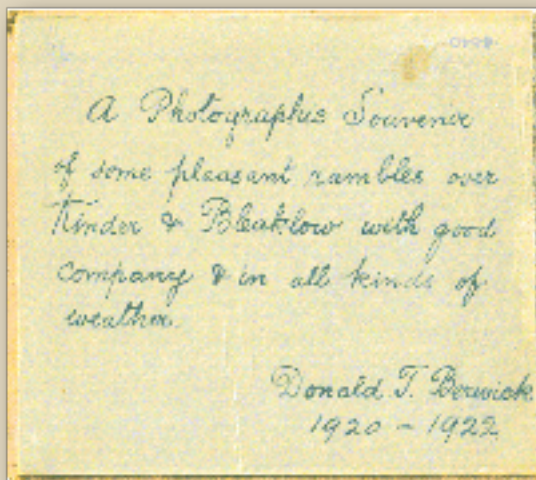 A Photographic Souvenir
of some pleasant rambles over
Kinder & Bleaklow with good
company & in all kinds of
weather.
Donald T. Berwick.
1920 - 1922